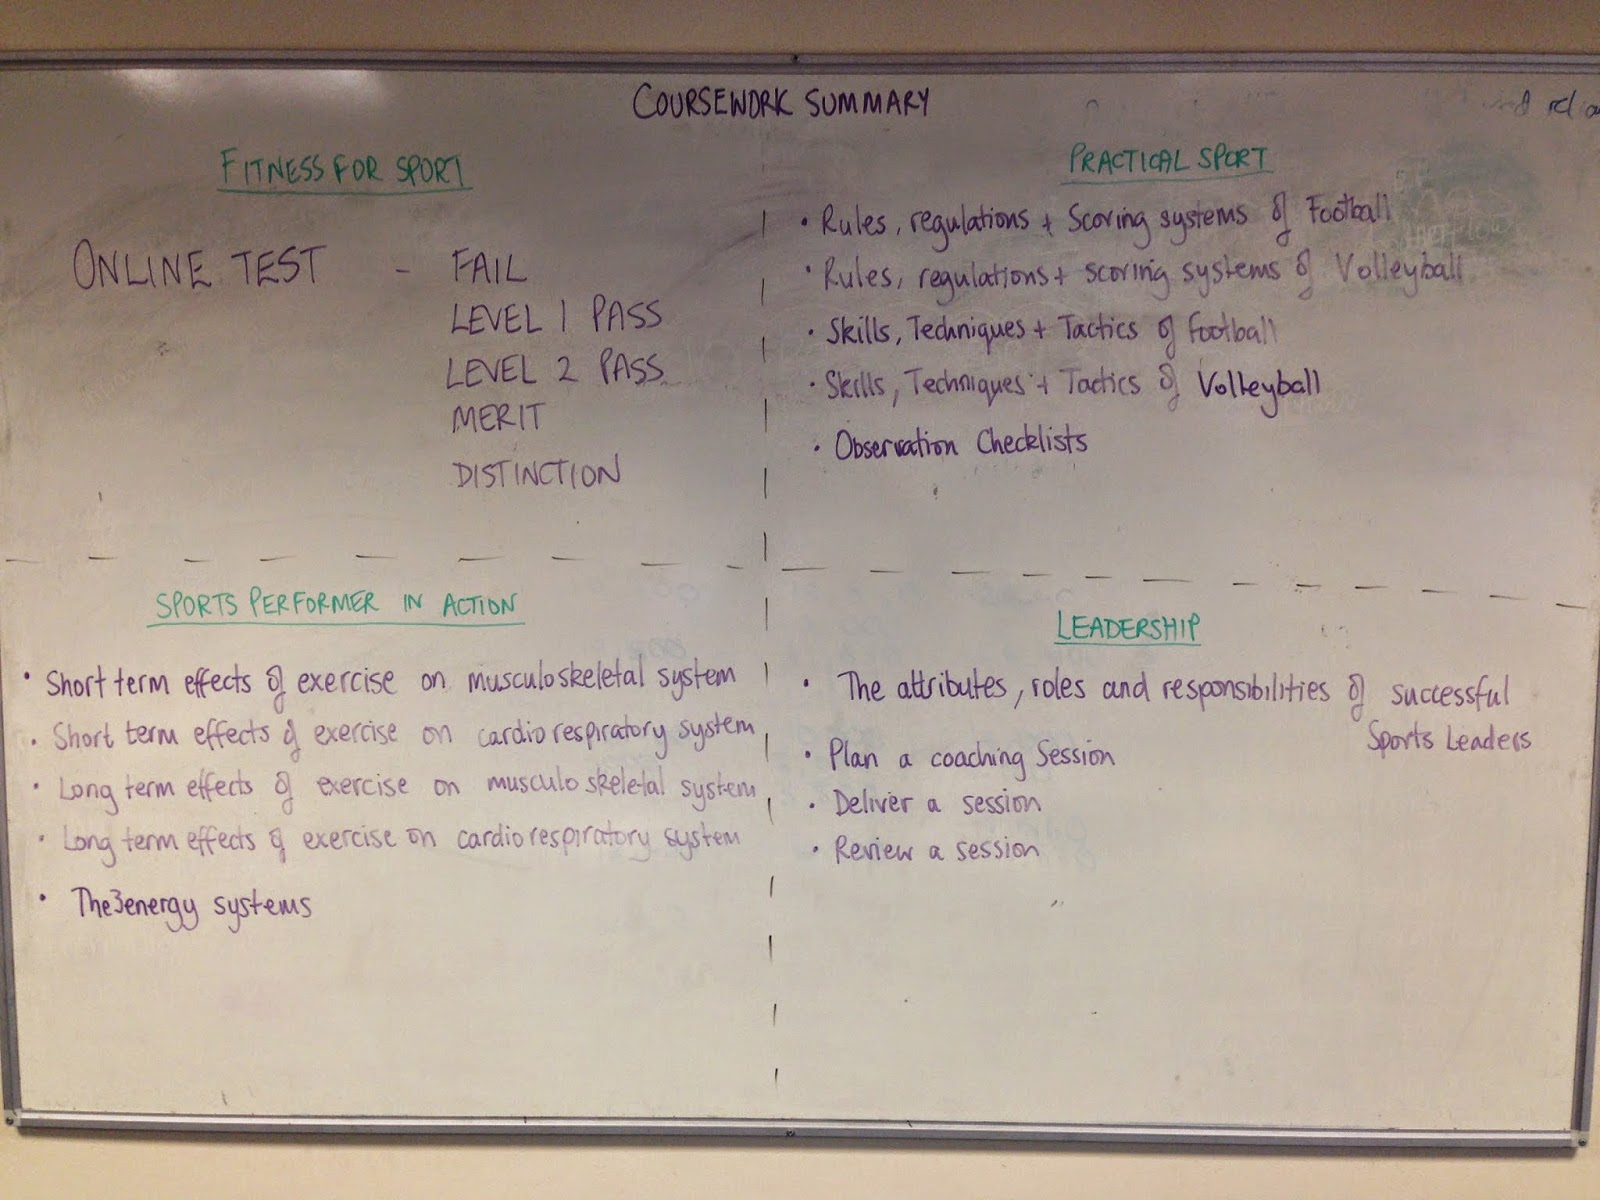 COURSEWORK SUMMARY
FITNESS FOR SPORT
ONLINE TEST - FAIL
LEVEL 1 PASS
LEVEL 2 PASS
MERIT
DISTINCTION
PRACTICAL SPORT
• Rules, regulations + Scoring systems of Football
• Rules, regulations + scoring systems of Volleyball
• Skills, Techniques + Tactics of Football
• Skills, Techniques + Tactics of Volleyball
• Observation Checklists
SPORTS PERFORMER IN ACTION
• Short term effects of exercise on musculoskeletal system
• Short term effects of exercise on cardiorespiratory system
• Long term effects of exercise on musculoskeletal system
• Long term effects of exercise on cardiorespiratory system
• The 3 energy systems
LEADERSHIP
• The attributes, roles and responsibilities of successful
Sports Leaders
• Plan a coaching Session
• Deliver a session
• Review a session